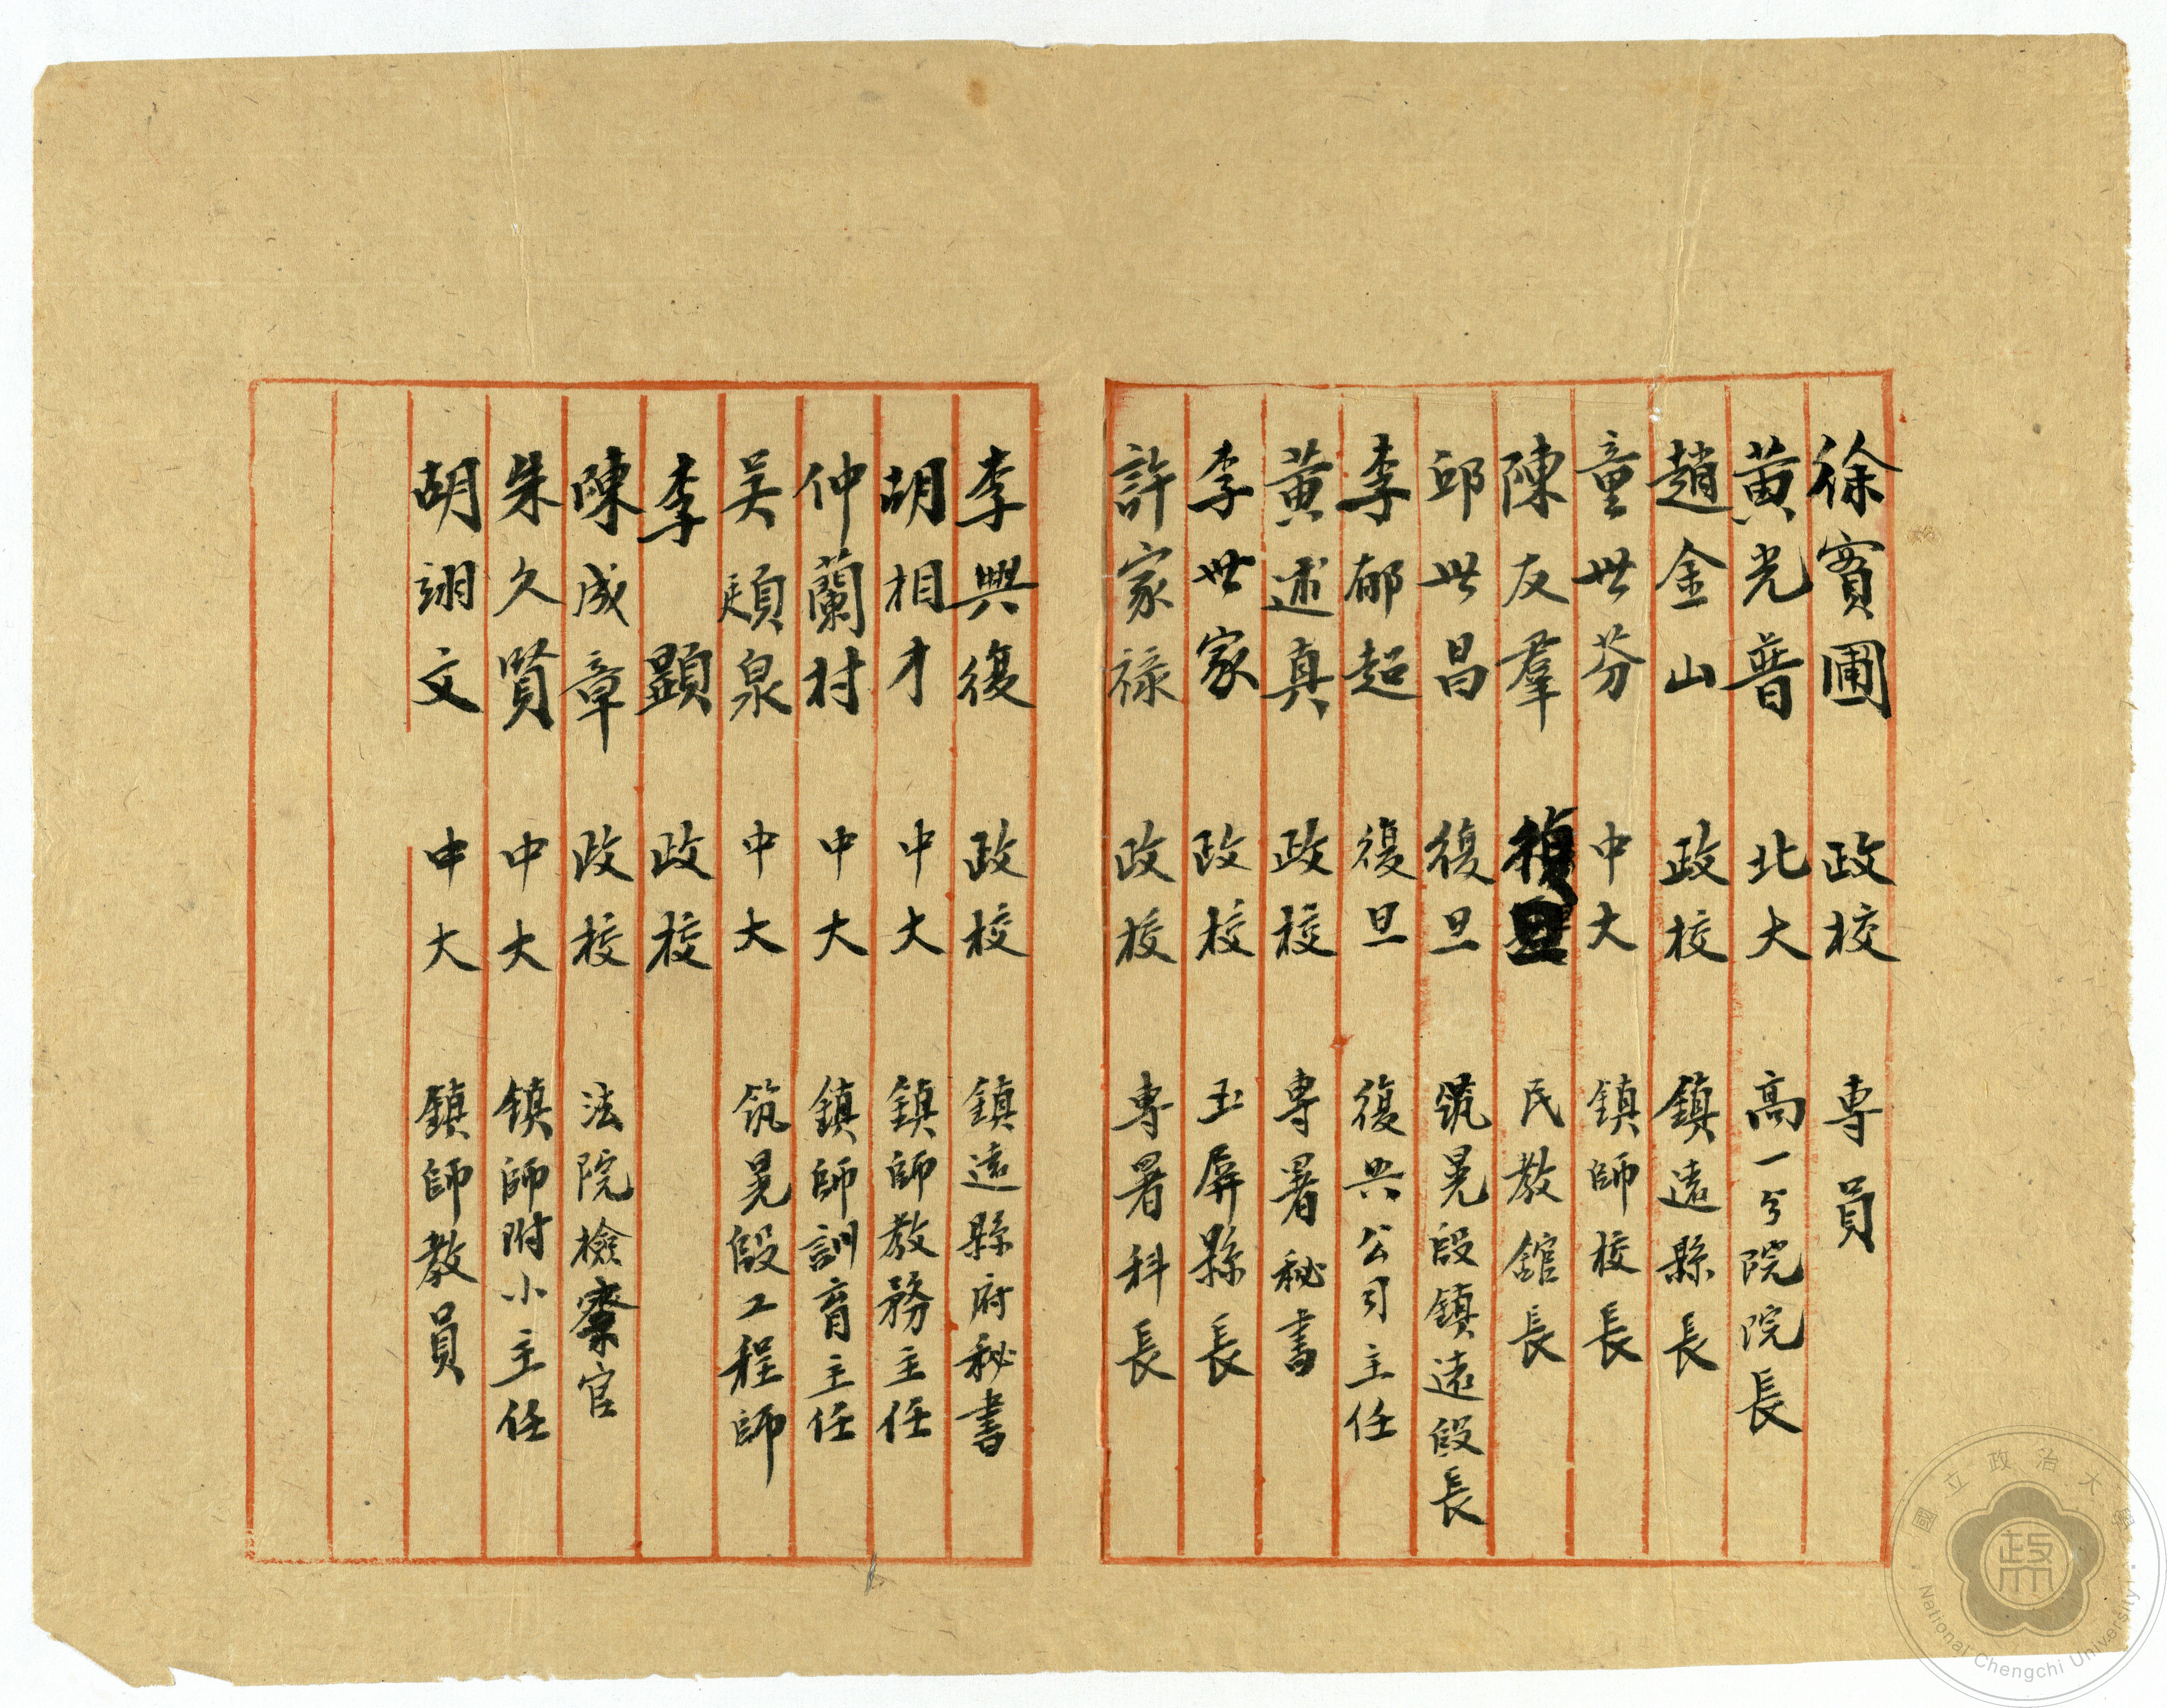 徐實圃 政校 專員
黃光普 北大 高一分院院長
趙金山 政校 鎮遠縣長
童世芬 中大 鎮師校長
陳友羣 復旦 民教館長
邱世昌 復旦 筑晃段鎮遠段長
李郁超 復旦 復興公司主任
黃述真 政校 專署秘書
李世家 政校 玉屏縣長
許家祿 政校 專署科長
李興復 政校 鎮遠縣府秘書
胡相才 中大 鎮師教務主任
仲蘭村 中大 鎮師訓育主任
吳頲泉 中大 筑晃段工程師
李顕 政校
陳成章 政校 法院檢察官
朱久賢 中大 鎮師附小主任
胡翊文 中大 鎮師教員
國立政治大學
National Chengchi University